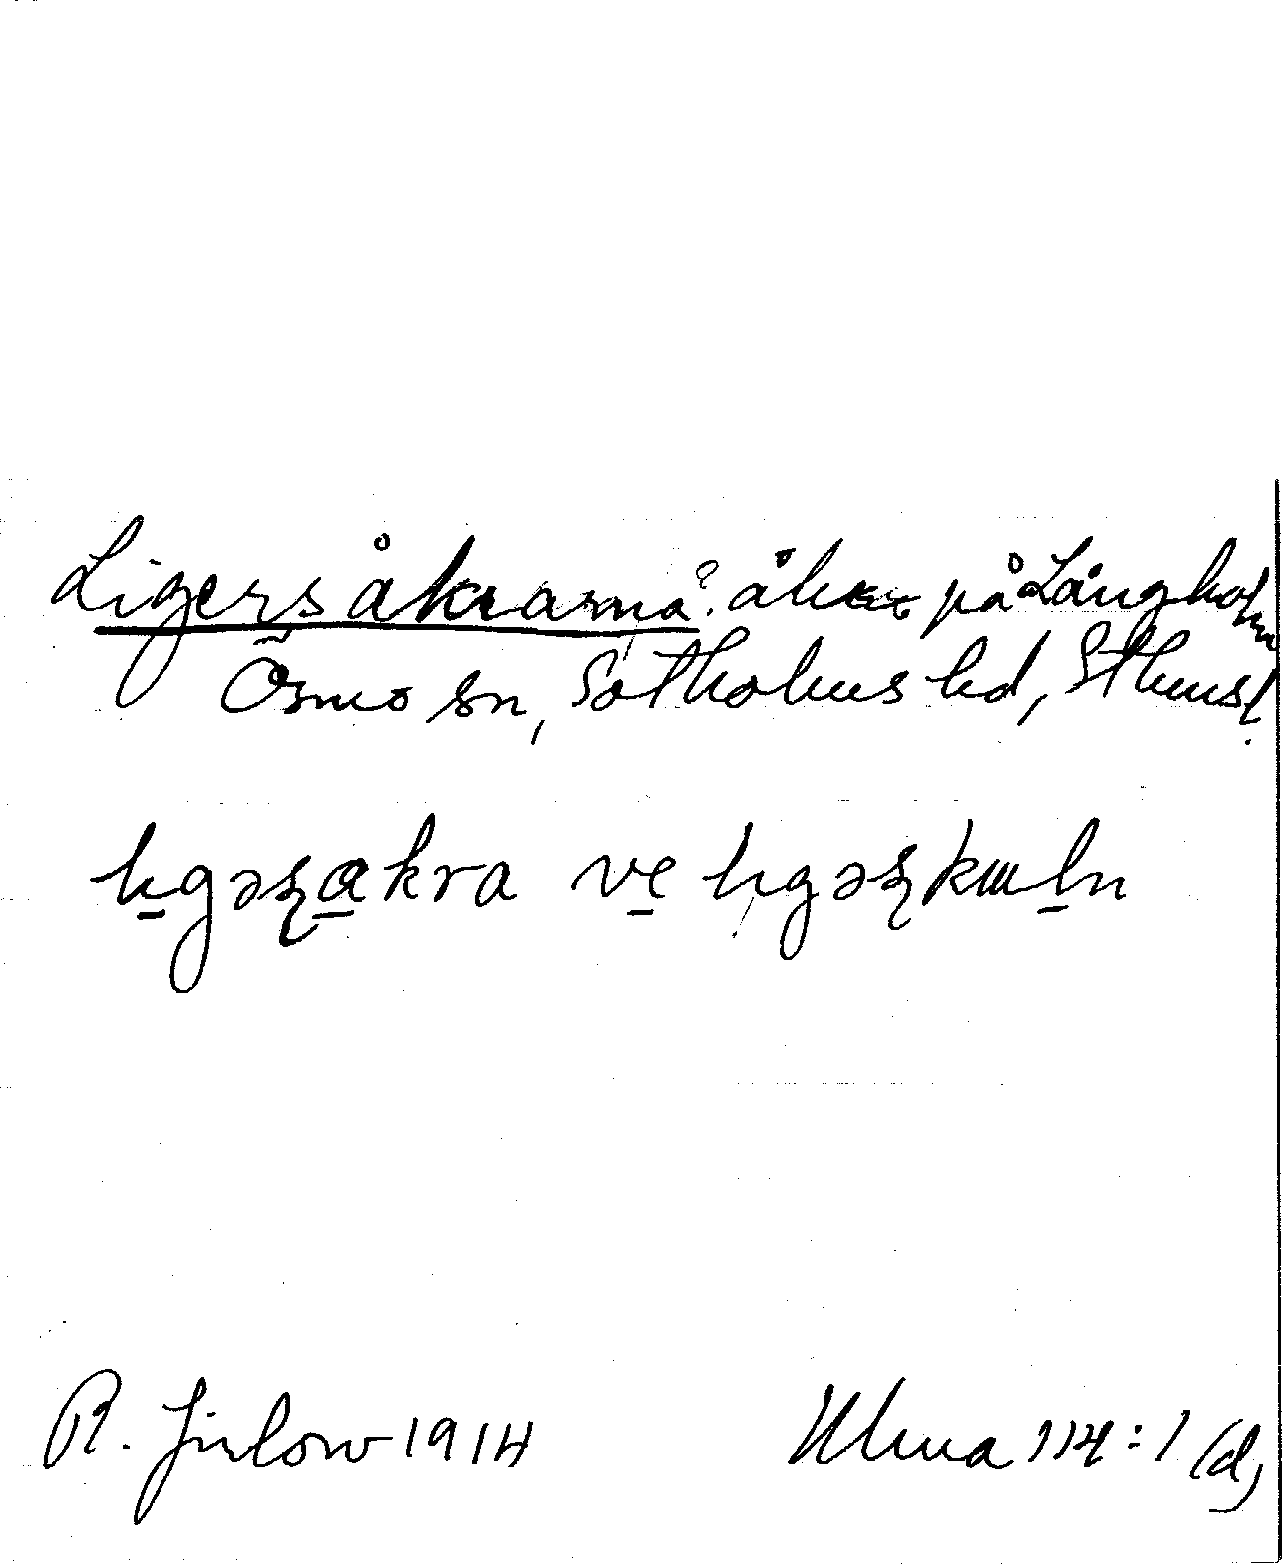 Ligersåkrarna? åker på Långholm
Ösmo sn, Sotholms hd, Sthmsl.
ligəʂakra ve ligəʂkɯln
R. Jirlow 1914
Ulma 114:1 (d)